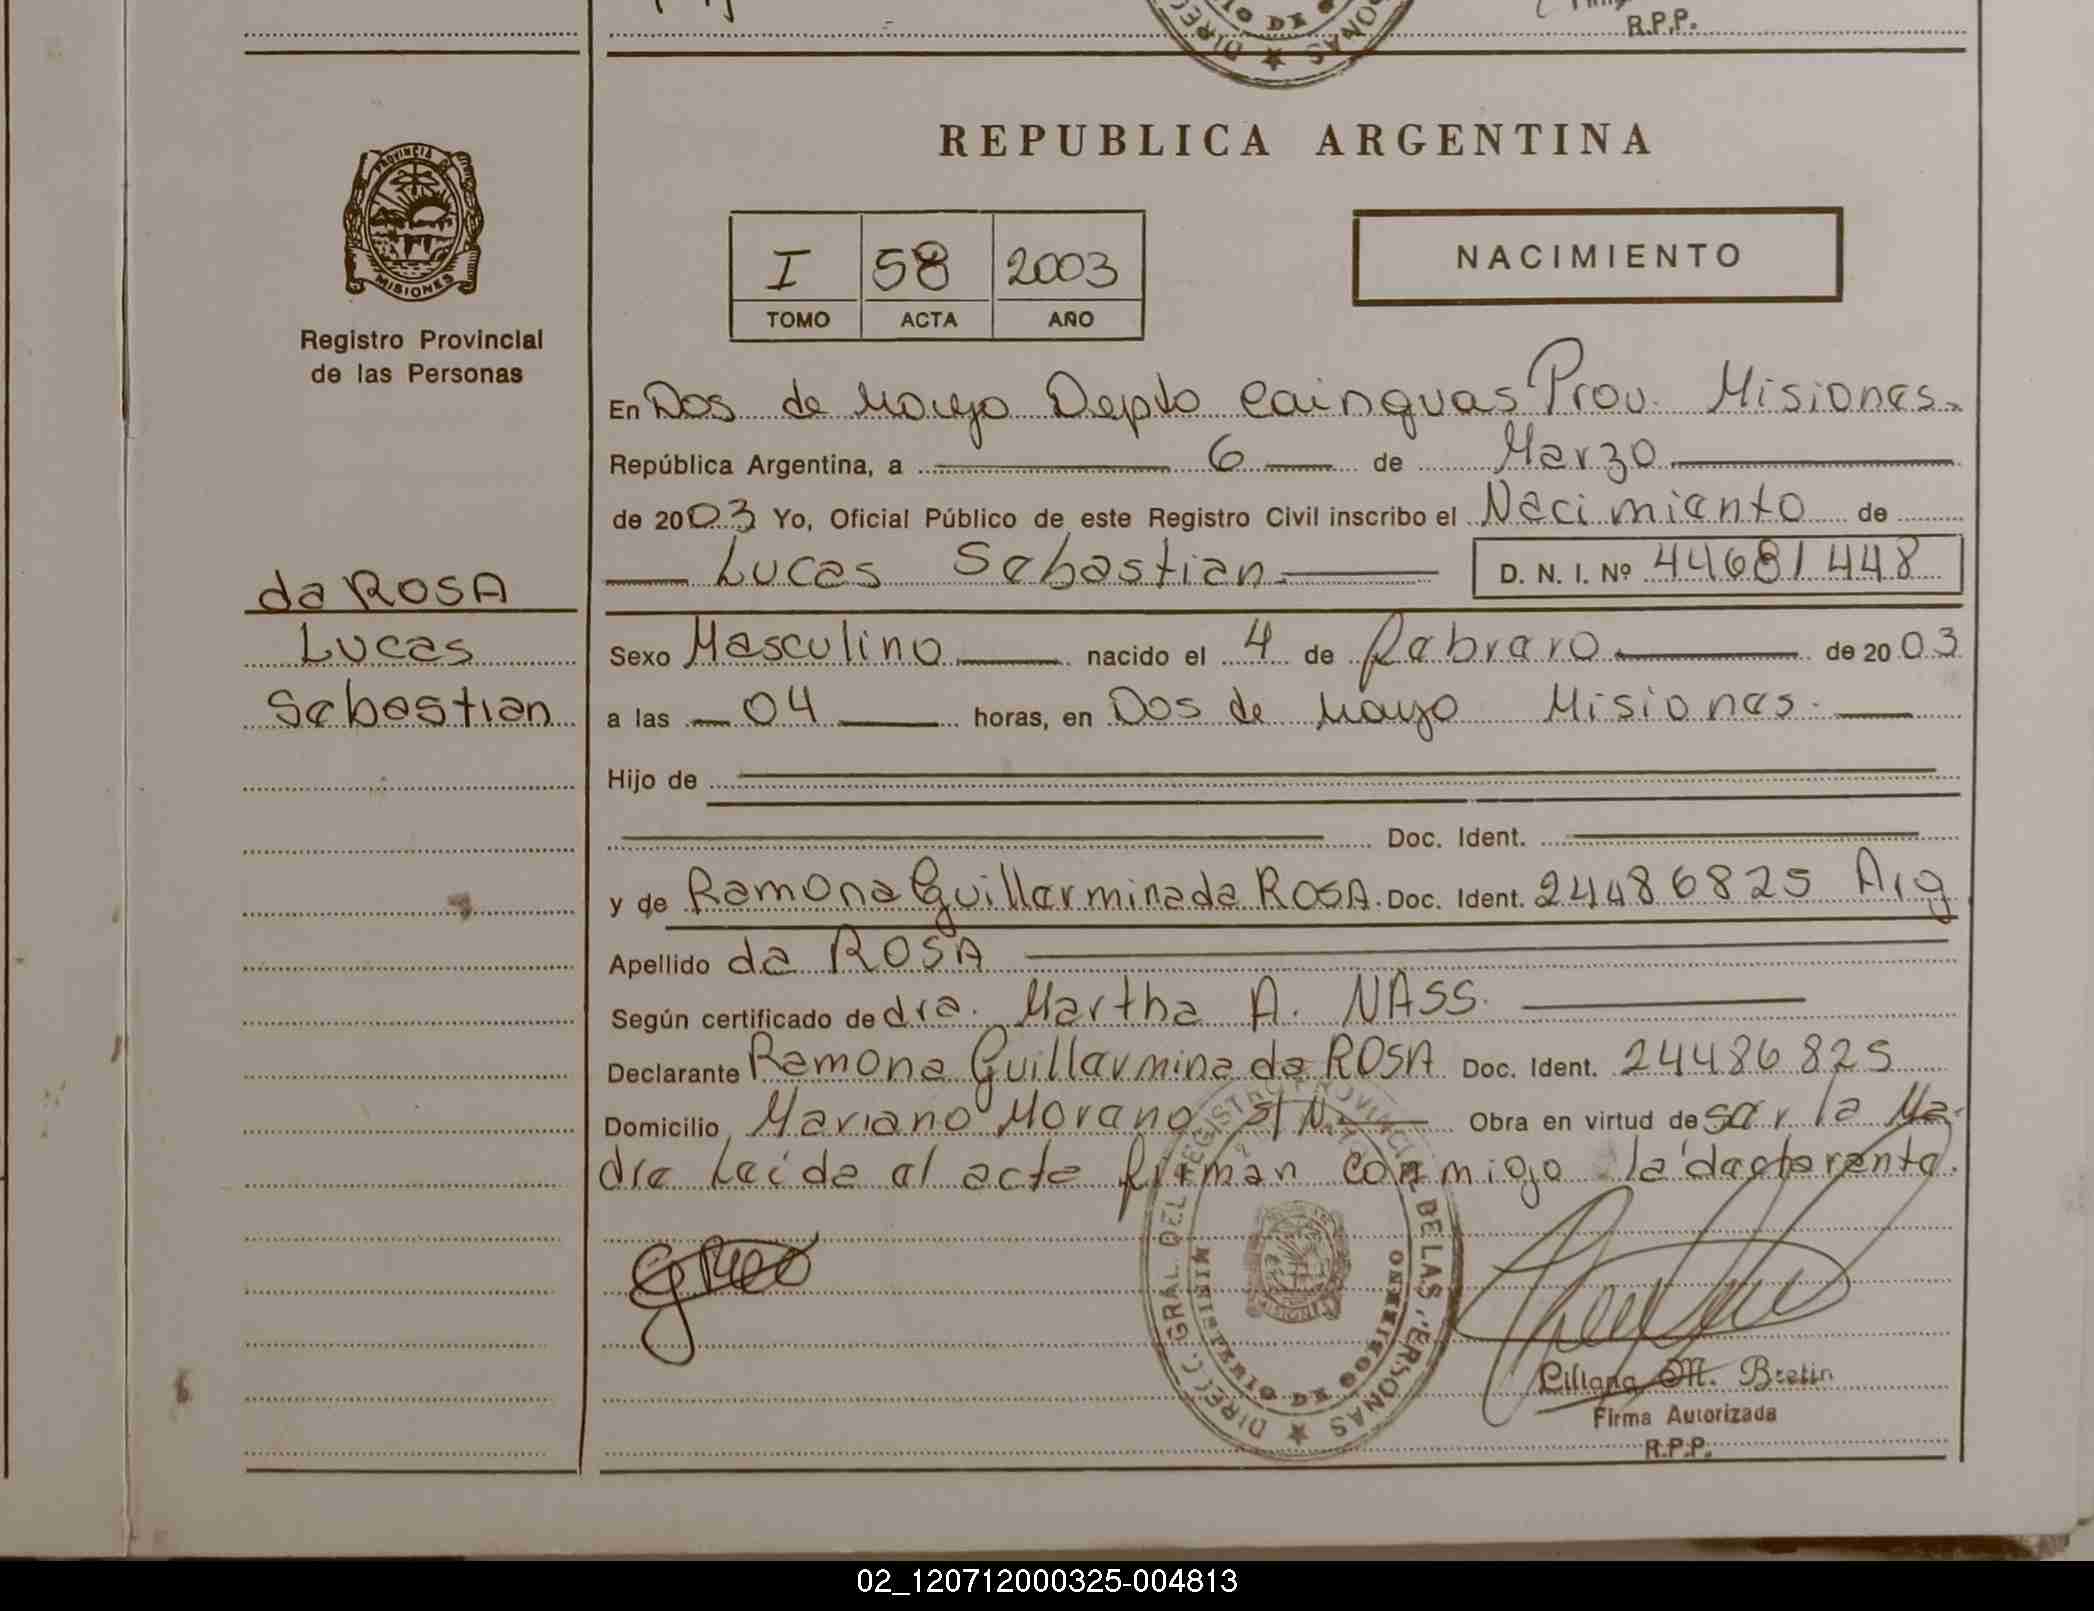 R.P.P.
REPUBLICA ARGENTINA
PROVINCIA
MISIONES
Registro Provincial
de las Personas
I 58 2003
TOMO ACTA AÑO
NACIMIENTO
En Dos de Mayo Depto Cainguas Prov. Misiones.
República Argentina, a 6 de Marzo
de 2003 Yo, Oficial Público de este Registro Civil inscribo el Nacimiento de
Lucas Sebastian D. N. I. Nº 44681448
da ROSA
Lucas
Sebastian
Sexo Masculino nacido el 4 de Febrero de 2003
a las 04 horas, en Dos de Mayo Misiones.
Hijo de
Doc. Ident.
y de Ramona Guillermina da ROSA. Doc. Ident. 24486825 Arg
Apellido da ROSA
Según certificado de dra. Martha A. NASS.
Declarante Ramona Guillermina da ROSA Doc. Ident. 24486825
Domicilio Mariano Moreno s/N. Obra en virtud de ser la Ma-
dre Leída el acta firman conmigo la declarante.
DIREC. GRAL. DEL REGISTRO PROVINCIAL DE LAS PERSONAS
MINISTERIO DE GOBIERNO
Liliana M. Bretin
Firma Autorizada
R.P.P.
02_120712000325-004813